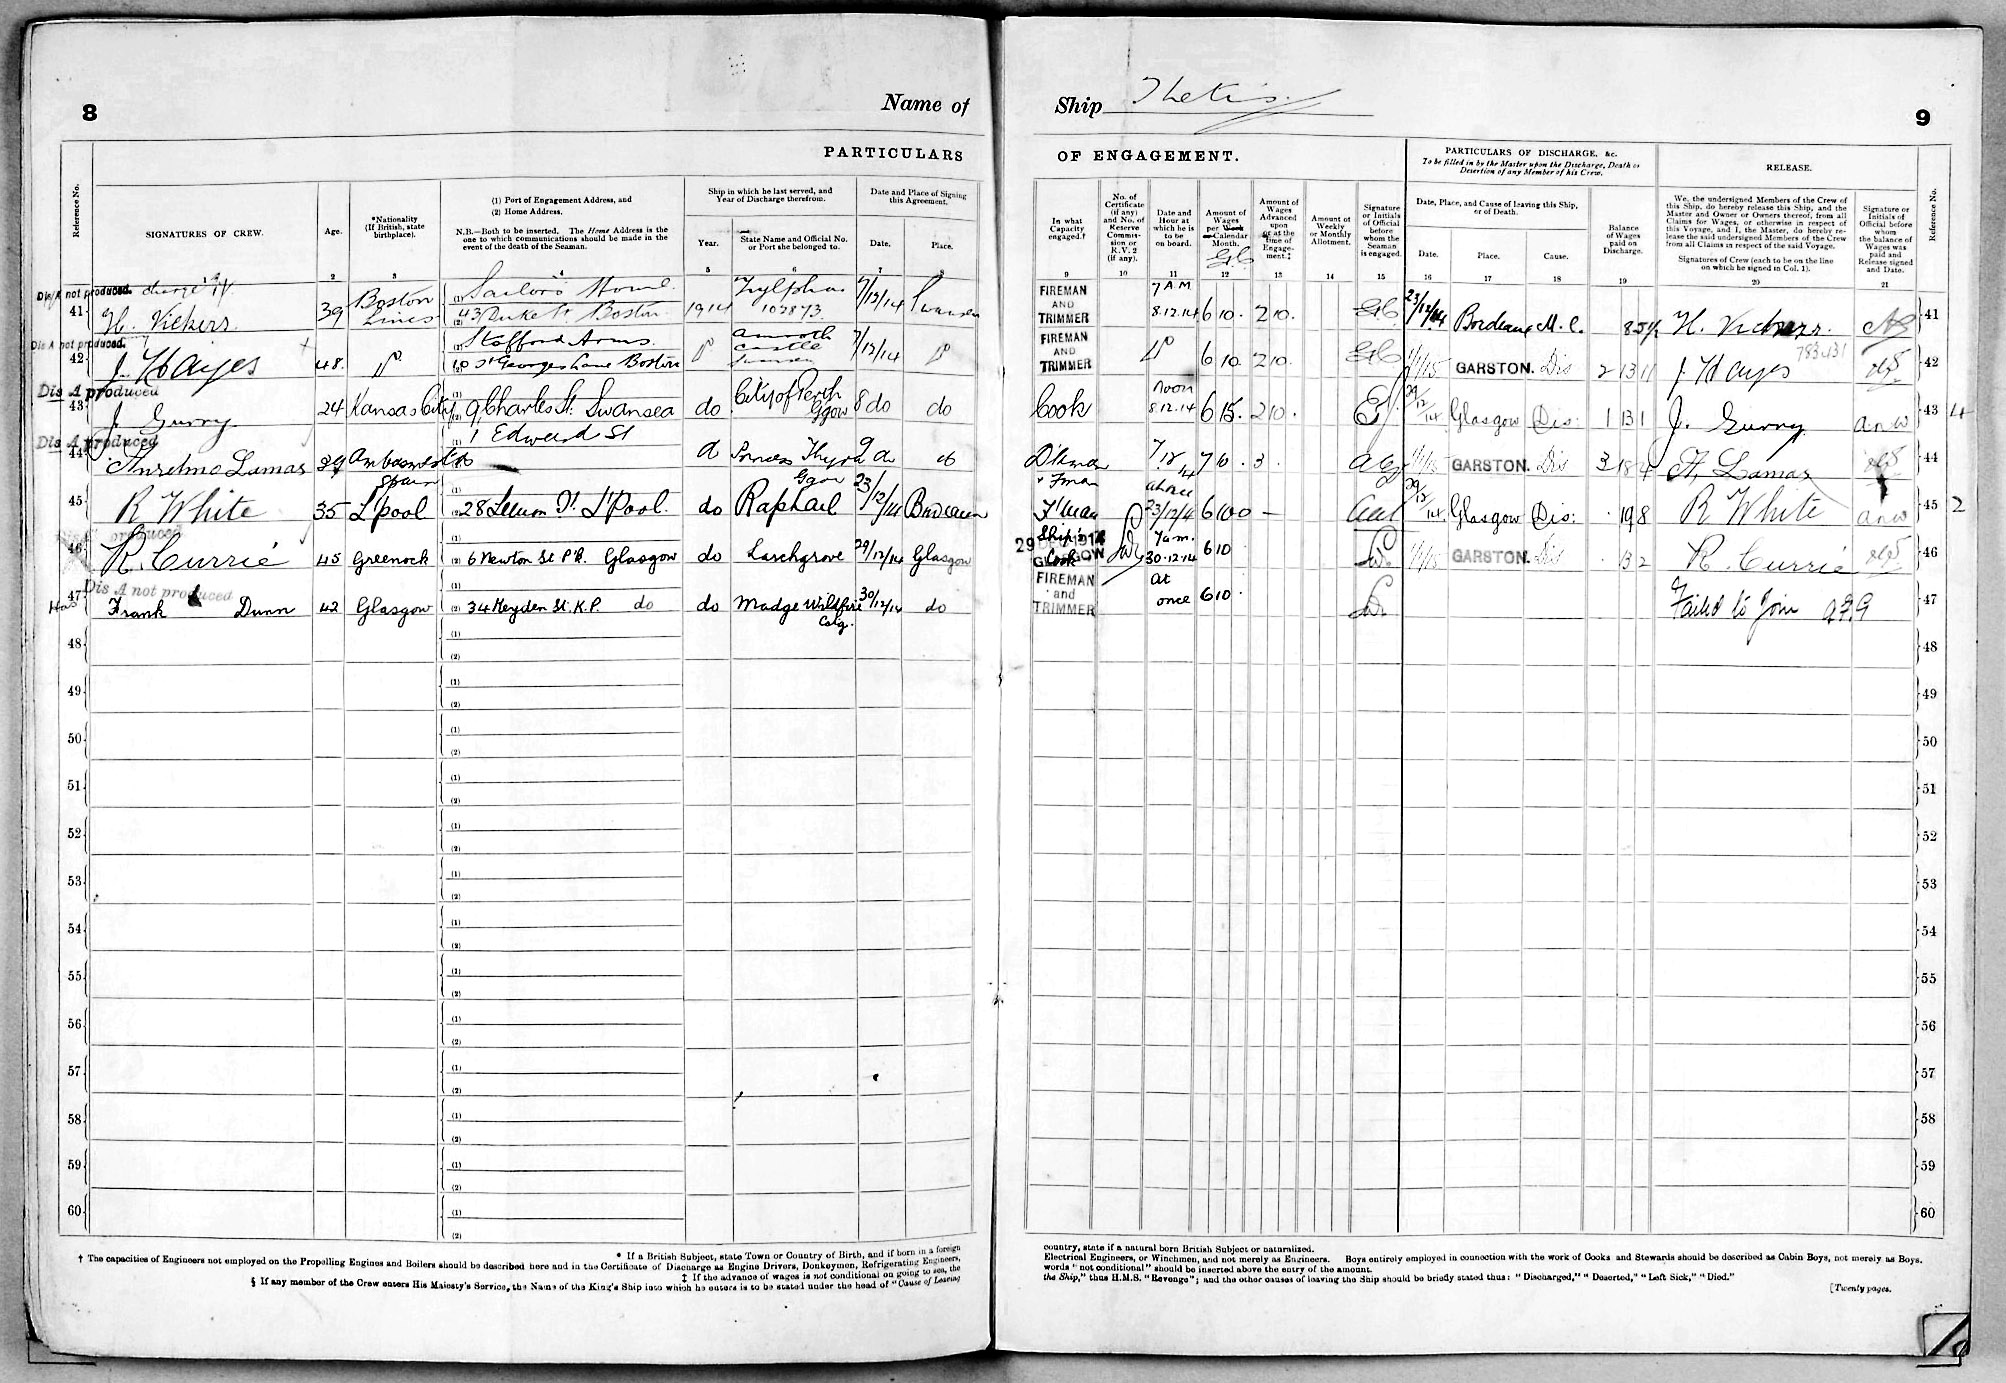 8
Name of
Ship Thetis.
9
PARTICULARS
OF ENGAGEMENT.
PARTICULARS OF DISCHARGE, &c.
To be filled in by the Master upon the Discharge, Death or
Desertion of any Member of his Crew.
RELEASE.
Reference No.
SIGNATURES OF CREW.
Age.
*Nationality
(If British, state
birthplace).
(1) Port of Engagement Address, and
(2) Home Address.
N.B.—Both to be inserted. The Home Address is the
one to which communications should be made in the
event of the death of the Seaman.
Ship in which he last served, and
Year of Discharge therefrom.
Year.
State Name and Official No.
or Port she belonged to.
Date and Place of Signing
this Agreement.
Date.
Place.
In what
Capacity
engaged.†
No. of
Certificate
(if any)
and No. of
Reserve
Commis-
sion or
R.V. 2
(if any).
Date and
Hour at
which he is
to be
on board.
Amount of
Wages
per Week
or Calendar
Month.
Amount of
Wages
Advanced
upon
or at the
time of
Engage-
ment.‡
Amount of
Weekly
or Monthly
Allotment.
Signature
or Initials
of Official
before
whom the
Seaman
is engaged.
Date, Place, and Cause of leaving this Ship,
or of Death.
Date.
Place.
Cause.
Balance
of Wages
paid on
Discharge.
We, the undersigned Members of the Crew of
this Ship, do hereby release this Ship, and the
Master and Owner or Owners thereof, from all
Claims for Wages, or otherwise in respect of
this Voyage, and I, the Master, do hereby re-
lease the said undersigned Members of the Crew
from all Claims in respect of the said Voyage.
Signatures of Crew (each to be on the line
on which he signed in Col. 1).
Signature or
Initials of
Official before
whom
the balance of
Wages was
paid and
Release signed
and Date.
Reference No.
2 3 4 5 6 7 8 9 10 11 12 13 14 15 16 17 18 19 20 21
Dis A not produced
41 H. Vickers 39 Boston Lincs (1) Sailors Home (2) 43 Duke St Boston 1914 102873 7/12/14 Swansea FIREMAN AND TRIMMER 7 AM 8.12.14 6 10. 2 10. 23/12/14 Bordeaux 8 5½ H. Vickers 41
Dis A not produced.
42 J. Hayes 48. (1) Stafford Arms. (2) St Georges Lane Boston castle Swansea 7/12/14 FIREMAN AND TRIMMER 6 10. 2 10. 1/1/15 GARSTON. Dis 2 13 11 J Hayes 783431 42
Dis A produced
43 J. Gurry. 24 Kansas City (1) (2) 9 Charles St. Swansea do City of Perth Ggow 8 do do Cook Noon 8.12.14 6 15. 2 10. 29/12/14 Glasgow Dis: 1 13 1 J. Gurry. anw 43 4
Dis A produced
44 Anselmo Lamas 39 Spain (1) 1 Edward St (2) Princess Thyra 9 do D'kman + Fman 7 0. 3. 1/1/15 GARSTON. Dis 3 18 4 A Lamas 44
45 R White 35 L'pool (1) (2) 28 St. L'Pool. do Raphael Ggow 23/12/14 Bordeaux F'man at once 23/12/4 6 10 0 — 29/12/14. Glasgow Dis: . 19 8 R White anw 45 2
Dis A produced
46 R. Currie 45 Greenock (1) (2) 6 Newton St P.R. Glasgow do Larchgrove 29/12/14 Glasgow 29 DEC 1914 GLASGOW Ship's Cook 7am. 30.12.14 6 10 1/1/15 GARSTON. Dis . 13 2 R. Currie 46
Dis A not produced
47 Frank Dunn 42 Glasgow (1) (2) 34 Heyden St. K.P. do do Madge Wildfire Calg. 30/12/14 do FIREMAN and TRIMMER At once 6 10. Failed to Join 47
48 (1) (2) 48
49 (1) (2) 49
50 (1) (2) 50
51 (1) (2) 51
52 (1) (2) 52
53 (1) (2) 53
54 (1) (2) 54
55 (1) (2) 55
56 (1) (2) 56
57 (1) (2) 57
58 (1) (2) 58
59 (1) (2) 59
60 (1) (2) 60
* If a British Subject, state Town or Country of Birth, and if born in a foreign
† The capacities of Engineers not employed on the Propelling Engines and Boilers should be described here and in the Certificate of Discharge as Engine Drivers, Donkeymen, Refrigerating Engineers,
‡ If the advance of wages is not conditional on going to sea, the
§ If any member of the Crew enters His Majesty's Service, the Name of the King's Ship into which he enters is to be stated under the head of "Cause of Leaving
country, state if a natural born British Subject or naturalized.
Electrical Engineers, or Winchmen, and not merely as Engineers. Boys entirely employed in connection with the work of Cooks and Stewards should be described as Cabin Boys, not merely as Boys.
words "not conditional" should be inserted above the entry of the amount.
the Ship," thus H.M.S. "Revenge"; and the other causes of leaving the Ship should be briefly stated thus: "Discharged," "Deserted," "Left Sick," "Died."
[Twenty pages.